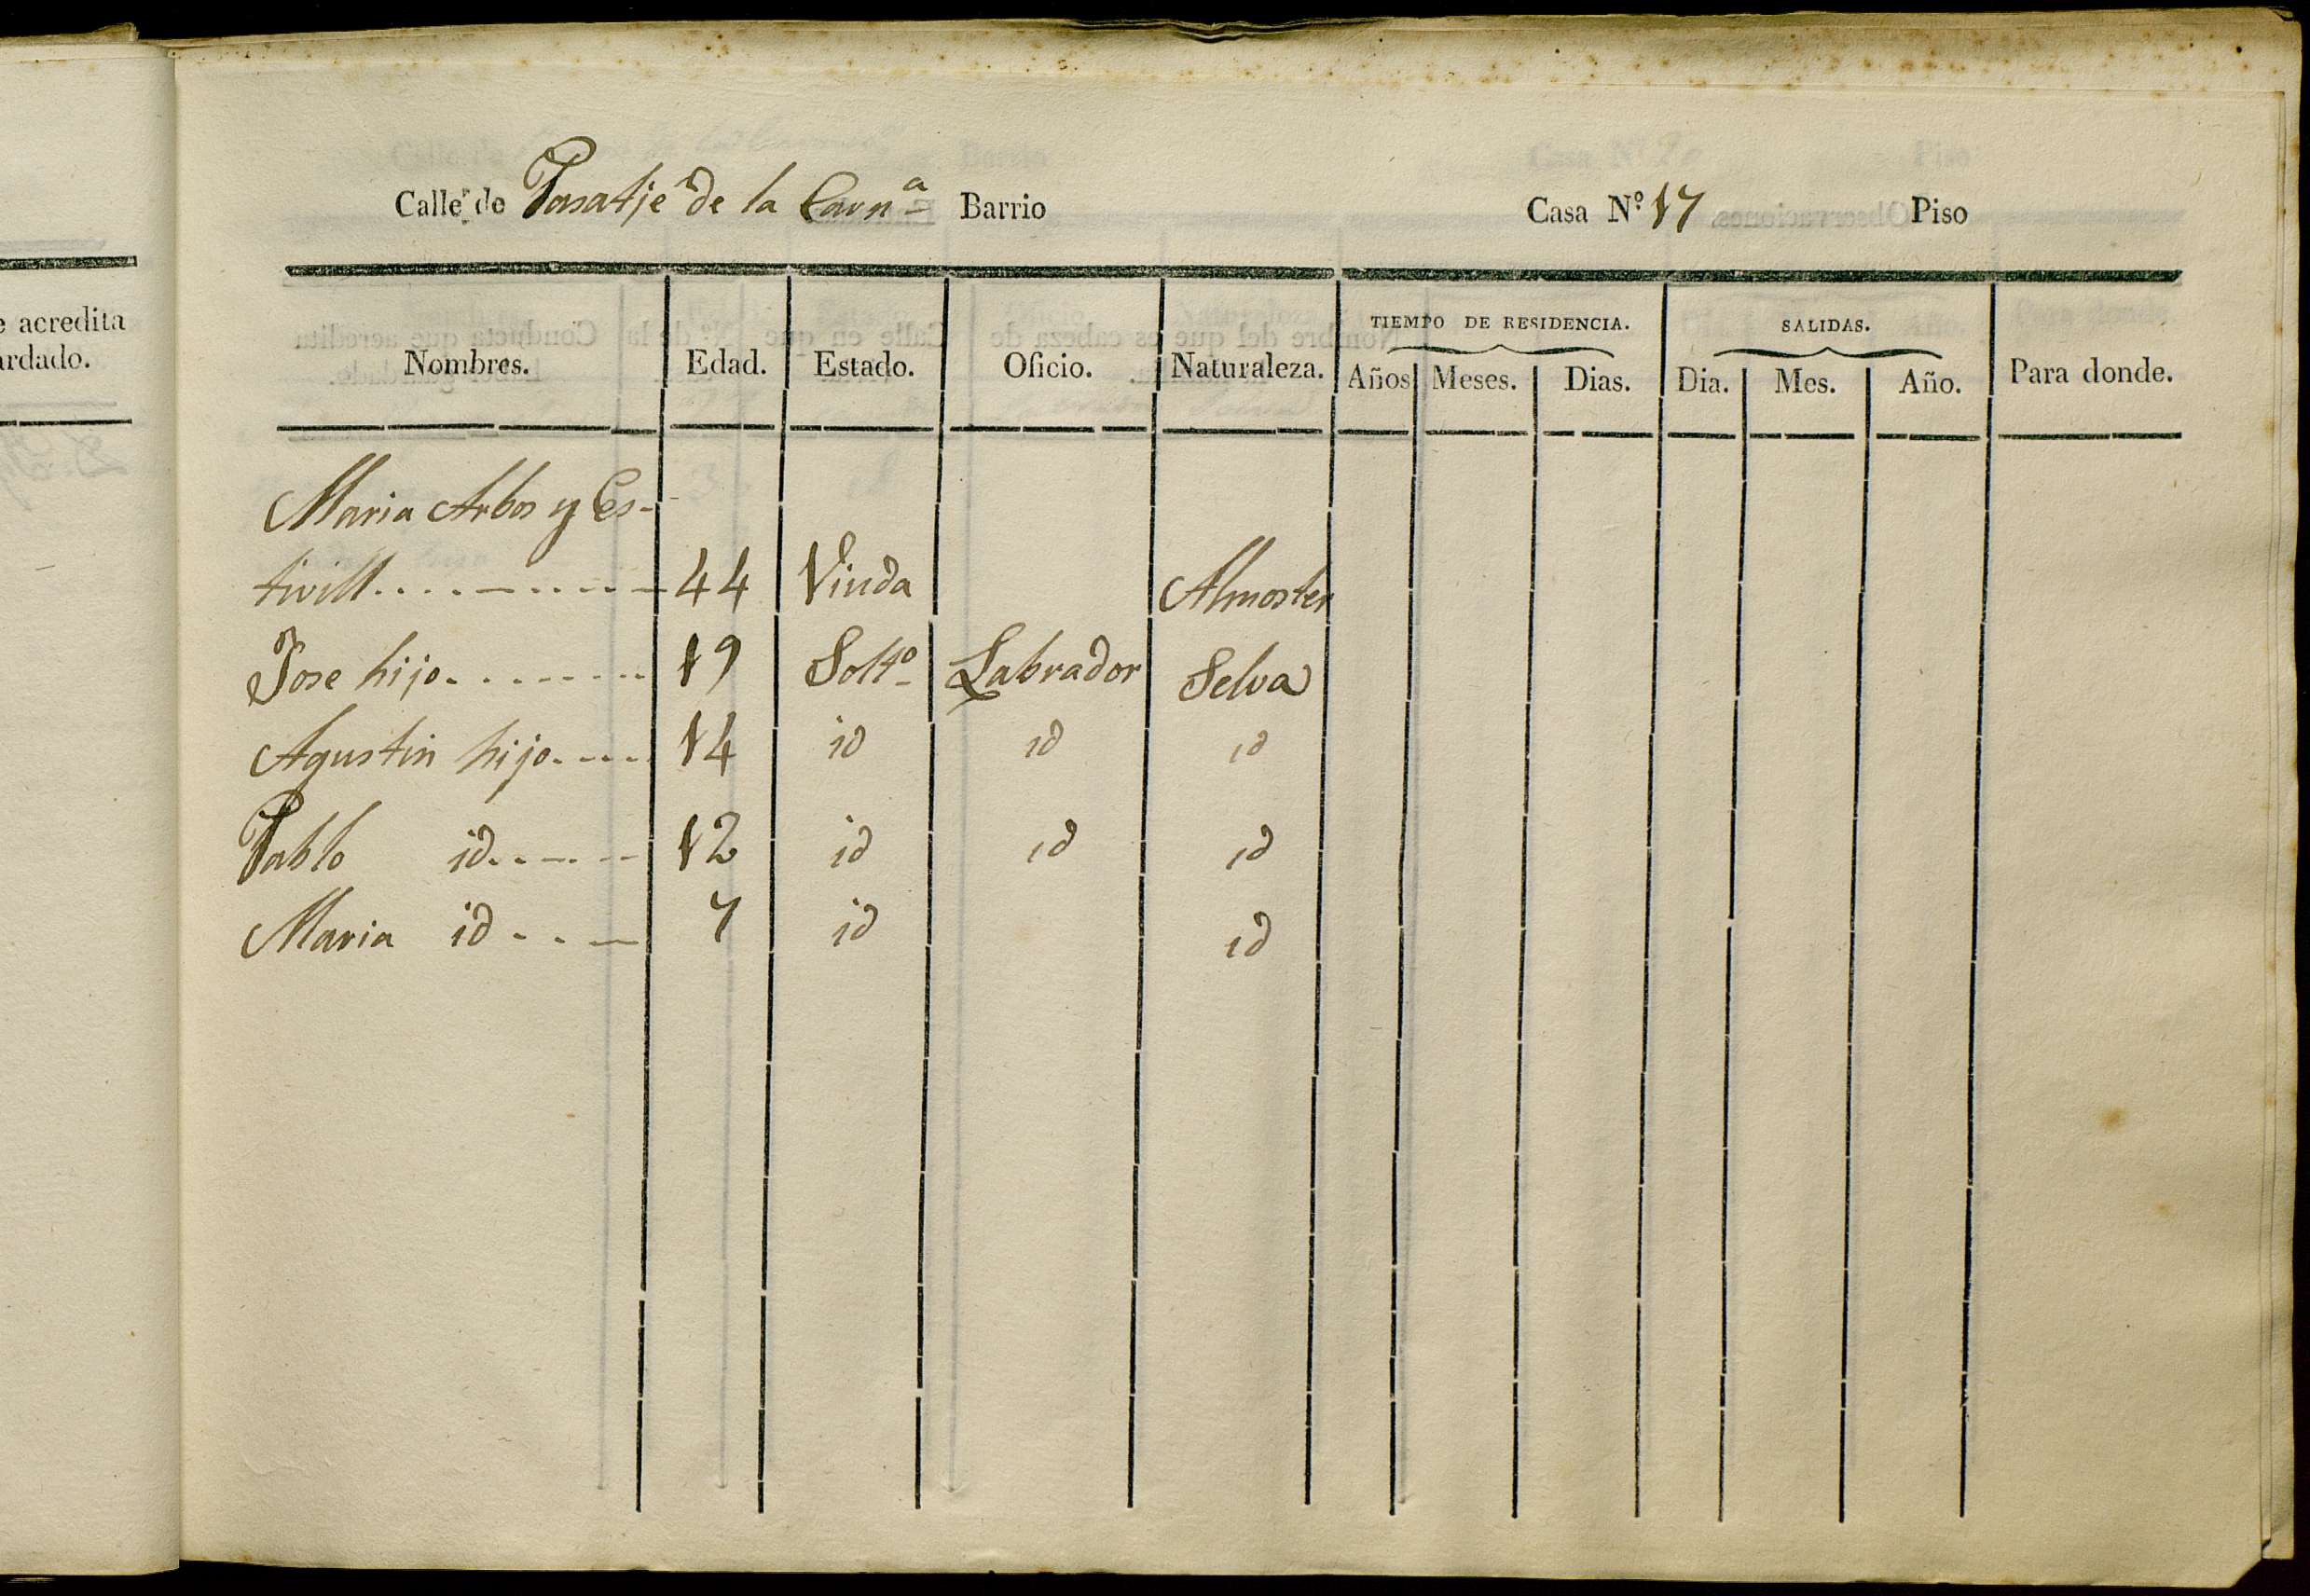 e acredita
ardado.
Calle de Pasatje de la Carnª Barrio Casa Nº 17 Piso
TIEMPO DE RESIDENCIA. SALIDAS.
Nombres. Edad. Estado. Oficio. Naturaleza. Años Meses. Dias. Dia. Mes. Año. Para donde.
Maria Arbos y Es-
tivill 44 Viuda Almoster
Jose hijo 19 Soltº Labrador Selva
Agustin hijo 14 id id id
Pablo id 12 id id id
Maria id 7 id id